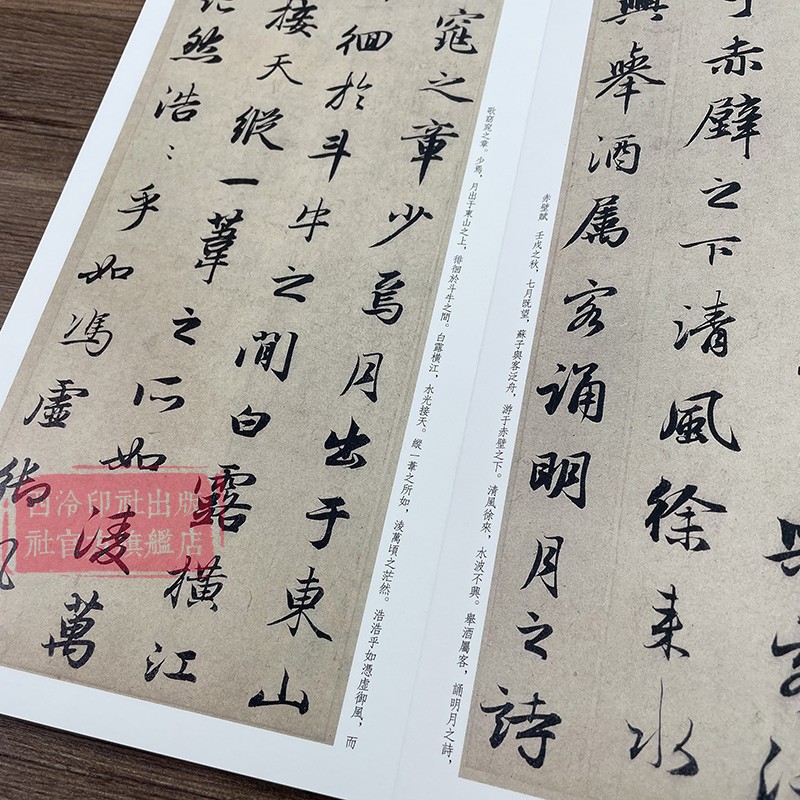 于赤壁之下清風徐来水
興舉酒属客誦明月之詩
赤壁賦 壬戌之秋，七月既望，蘇子與客泛舟，游于赤壁之下。清風徐來，水波不興。舉酒屬客，誦明月之詩，
歌窈窕之章。少焉，月出于東山之上，徘徊於斗牛之間。白露橫江，水光接天。縱一葦之所如，淩萬頃之茫然。浩浩乎如憑虛御風，而
窕之章少焉月出于東山
徊於斗牛之間白露橫江
接天縱一葦之所如凌萬
然浩〻乎如馮虛御風
西泠印社出版
社官方旗艦店